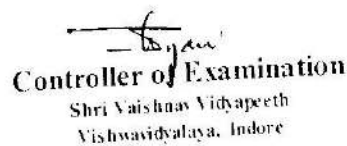 Controller of Examination
Shri Vaishnav Vidyapeeth
Vishwavidyalaya, Indore